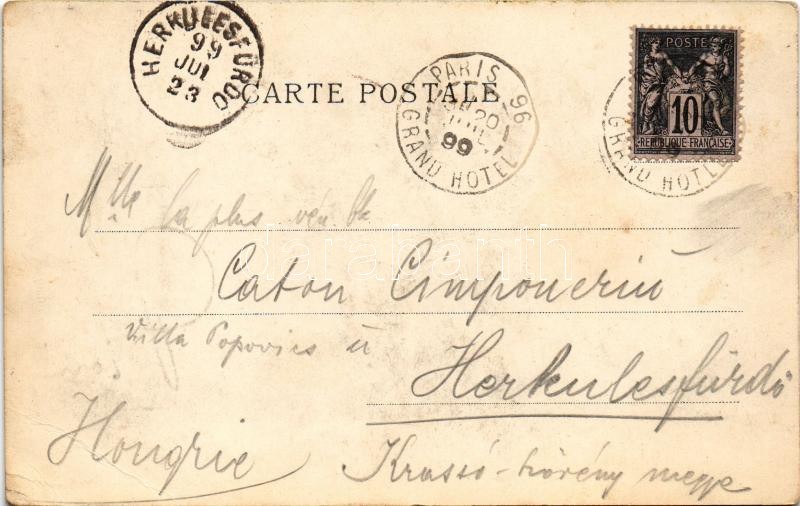 HERKULESFÜRDŐ
99
JUL
23
CARTE POSTALE
PARIS 96
20
JUIL
99
GRAND HOTEL
POSTE
10
REPUBLIQUE FRANÇAISE
GRAND HOTEL
Mlle la plus
darabanth
Caton
Villa Popovics
Herkulesfürdő
Hongrie
Krassó-Szörény megye